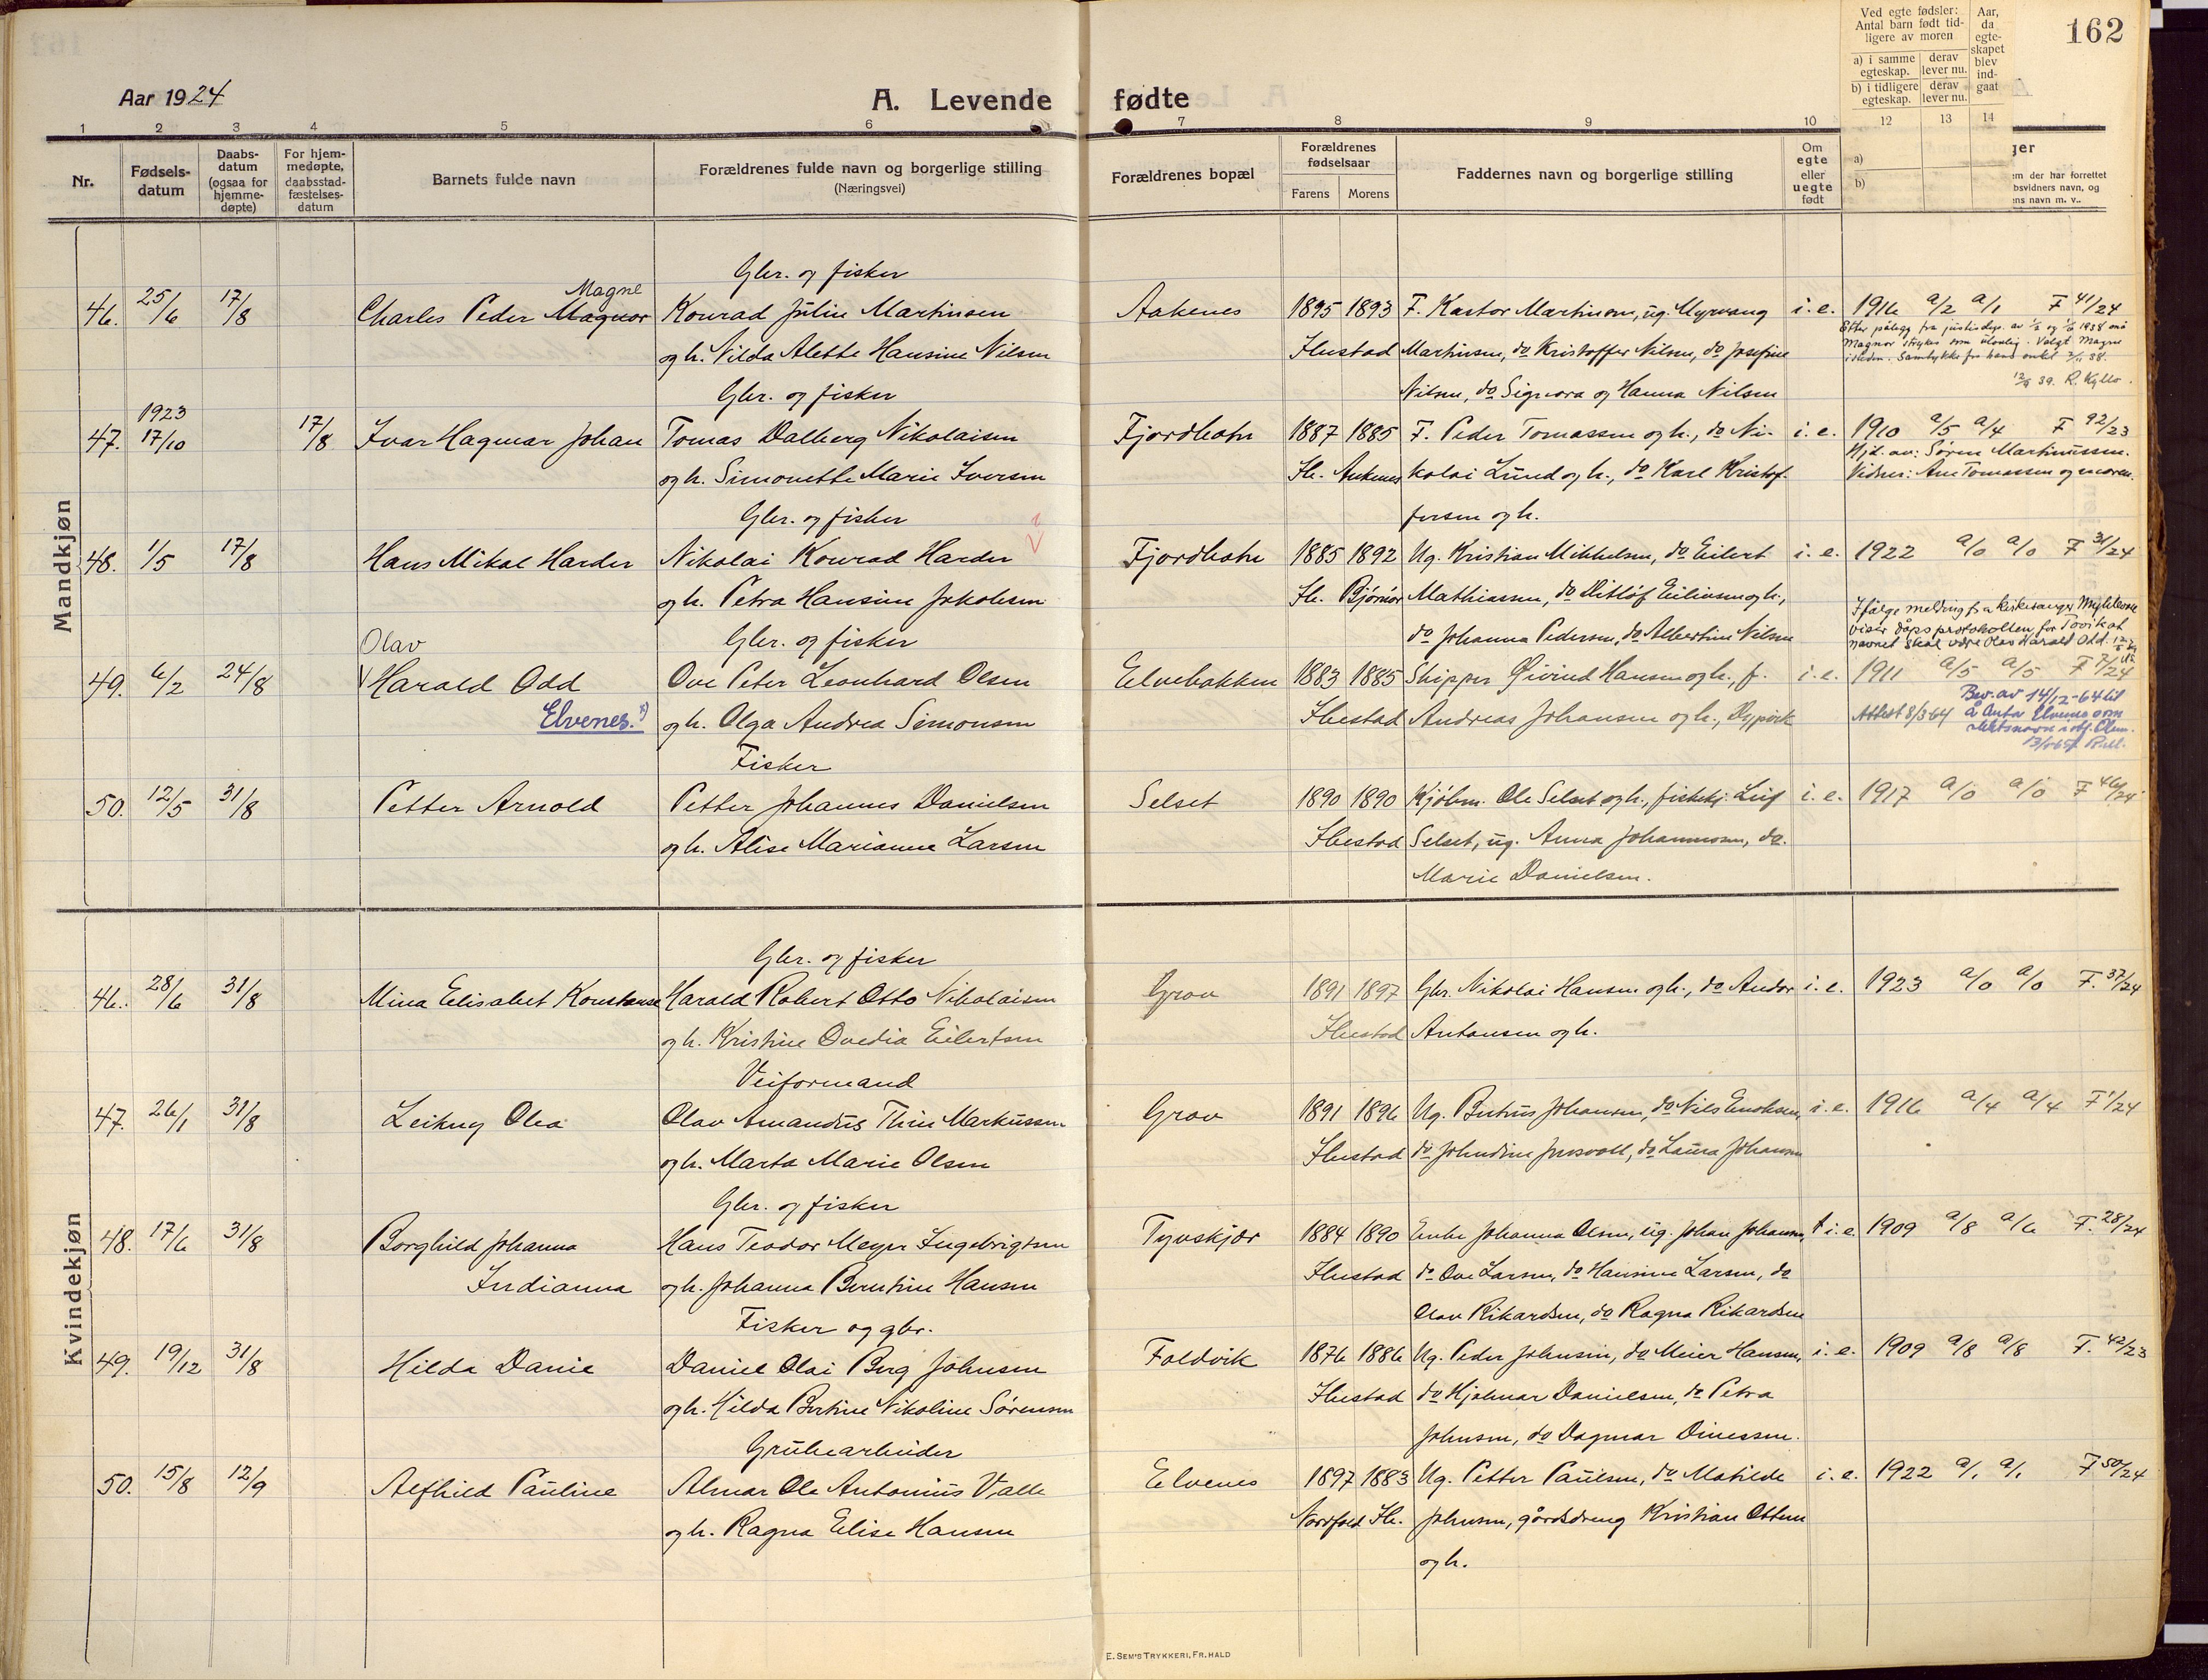 162
Aar 1924
A. Levende fødte
Ved egte fødsler: Antal barn født tidligere av moren
a) i samme egteskap. derav lever nu.
b) i tidligere egteskap. derav lever nu.
Aar, da egteskapet blev indgaat
1 2 3 4 5 6 7 8 9 10 12 13 14
Nr.
Fødsels-datum
Daabs-datum (ogsaa for hjemme-døpte)
For hjem-medøpte, daabsstad-fæstelses-datum
Barnets fulde navn
Forældrenes fulde navn og borgerlige stilling
(Næringsvei)
Forældrenes bopæl
Forældrenes fødselsaar
Farens Morens
Faddernes navn og borgerlige stilling
Om egte eller uegte født
a)
b)
ger
em der har forrettet
bsvidners navn, og
ns navn m. v..
Mandkjøn
Gbr. og fisker
46. 25/6 17/8 Charles Peder Magnor Magne Konrad Julin Martinsen Aakenes 1895 1893 F. Kastor Martinsen, ug. Myrvang i. e. 1916 a/2 a/1 F 41/24
og h. Nilda Alette Hansine Nilsen Ibestad Martinsen, do Kristoffer Nilsen, do Josefine
Efter pålegg fra justisdep. av 1938 må
Magnor strykes som ulovlig. Valgt Magne
isteden. Samtykke fra hans onkel 38.
39. R. Kyllo.
Gbr. og fisker Nilsen, do Signora og Hanna Nilsen
47. 1923 17/10 17/8 Ivar Hagmar Johan Tomas Dalberg Nikolaisen Fjordbotn 1887 1885 F. Peder Tomassen og h., do Ni- i. e. 1910 a/5 a/4 F 92/23
og h. Simonette Marie Iversen Ib. Ankenes kolai Lund og h., do Karl Kristof-
Hjd. av: Søren Martinussen.
Vidner: Ane Tomassen og moren.
Gbr. og fisker fersen og h.
48. 1/5 17/8 Hans Mikal Harder Nikolai Konrad Harder Fjordbotn 1885 1892 Ug. Kristian Mikkelsen, do Eilert i. e. 1922 a/0 a/0 F 31/24
og h. Petra Hansine Jakobsen Ib. Bjørnør Mathiassen, do Ditlof Eilivsen og h.,
Gbr. og fisker do Johanna Pedersen, do Albertine Nilsen
Ifølge melding fra kirkesanger
viser dåpsprotokollen for Tovik at
navnet skal være Olav Harald Odd.
49. 6/2 24/8 Olav Harald Odd Ove Peter Leonhard Olsen Elvebakken 1883 1885 Skipper Øivind Hansen og h., f. i. e. 1911 a/5 a/5 F 7/24
Elvenes. x) og h. Olga Andrea Simonsen Ibestad Andreas Johansen og h., Dypvik
Attest 8/3-64
Bev. av 14/12-64 til
å anta Elvenes som
slektsnavn i stf. Olsen.
Fisker
50. 12/5 31/8 Petter Arnold Petter Johannes Danielsen Selset 1890 1890 Kjøbm. Ole Selset og h., fiskekj. Leif i. e. 1917 a/0 a/0 F 46/24
og h. Alise Marianne Larsen Ibestad Selset, ug. Anna Johannesen, do.
Marie Danielsen.
Kvindekjøn
Gbr. og fisker
46. 28/6 31/8 Mina Elisabet Konstanse Harald Robert Otto Nikolaisen Grov 1891 1897 Gbr. Nikolai Hansen og h., do Andor i. e. 1923 a/0 a/0 F. 37/24
og h. Kristine Ovedia Eilertsen Ibestad Antonsen og h.
Veiformand
47. 26/1 31/8 Leikny Olea Olav Amandus Thiis Markussen Grov 1891 1896 Ug. Bertus Johansen, do Nils Enoksen, i. e. 1916 a/4 a/4 F 1/24
og h. Marta Marie Olsen Ibestad do Johndine, do Laura Johansen
Gbr. og fisker
48. 17/6 31/8 Borghild Johanna Hans Teodor Meyer Ingebrigtsen Tyvskjær 1884 1890 Enke Johanna Olsen, ug. Johan Johansen, i. e. 1909 a/8 a/6 F. 28/24
Indianna og h. Johanna Berntine Hansen Ibestad do Ove Larsen, do Hansine Larsen, do
Fisker og gbr. Olav Rikardsen, do Ragna Rikardsen
49. 19/12 31/8 Hilda Danie Daniel Olai Berg Johnsen Foldvik 1876 1886 Ug. Peder Johnsen, do Meier Hansen, i. e. 1909 a/8 a/8 F. 42/23
og h. Hilda Bertine Nikoline Sørensen Ibestad do Hjalmar Danielsen, do Petra
Grubearbeider Johnsen, do Dagmar Dinessen.
50. 15/8 12/9 Alfhild Pauline Almar Ole Antonius Valle Elvenes 1897 1883 Ug. Petter Paulsen, do Matilde i. e. 1922 a/1 a/1 F 50/24
og h. Ragna Elise Hansen Nordfold Ib. Johnsen, gårdsdreng Kristian Ottesen
og h.
E. SEM'S TRYKKERI, FR.HALD